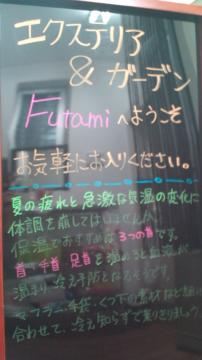 エクステリア
& ガーデン
Futamiへようこそ
お気軽にお入りください。
夏の疲れと急激な気温の変化に
体調を崩していませんか
保温でおすすめは3つの首です。
首 手首 足首を温めると血液が
温まり 冷え予防となるそうです。
マフラー 手袋、くつ下の素材など
合わせて、冷え知らずで乗りきりましょう